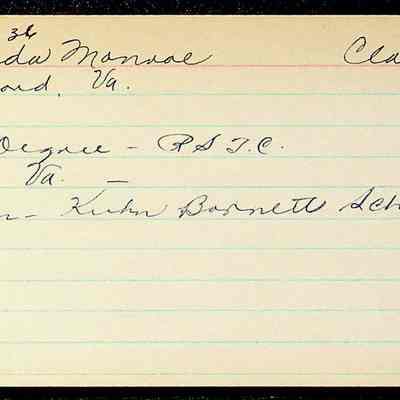 36
da Monroe Cla
ord, Va.
Degree - R S T.C.
Va. —
n - Kuhn Barnett Sch